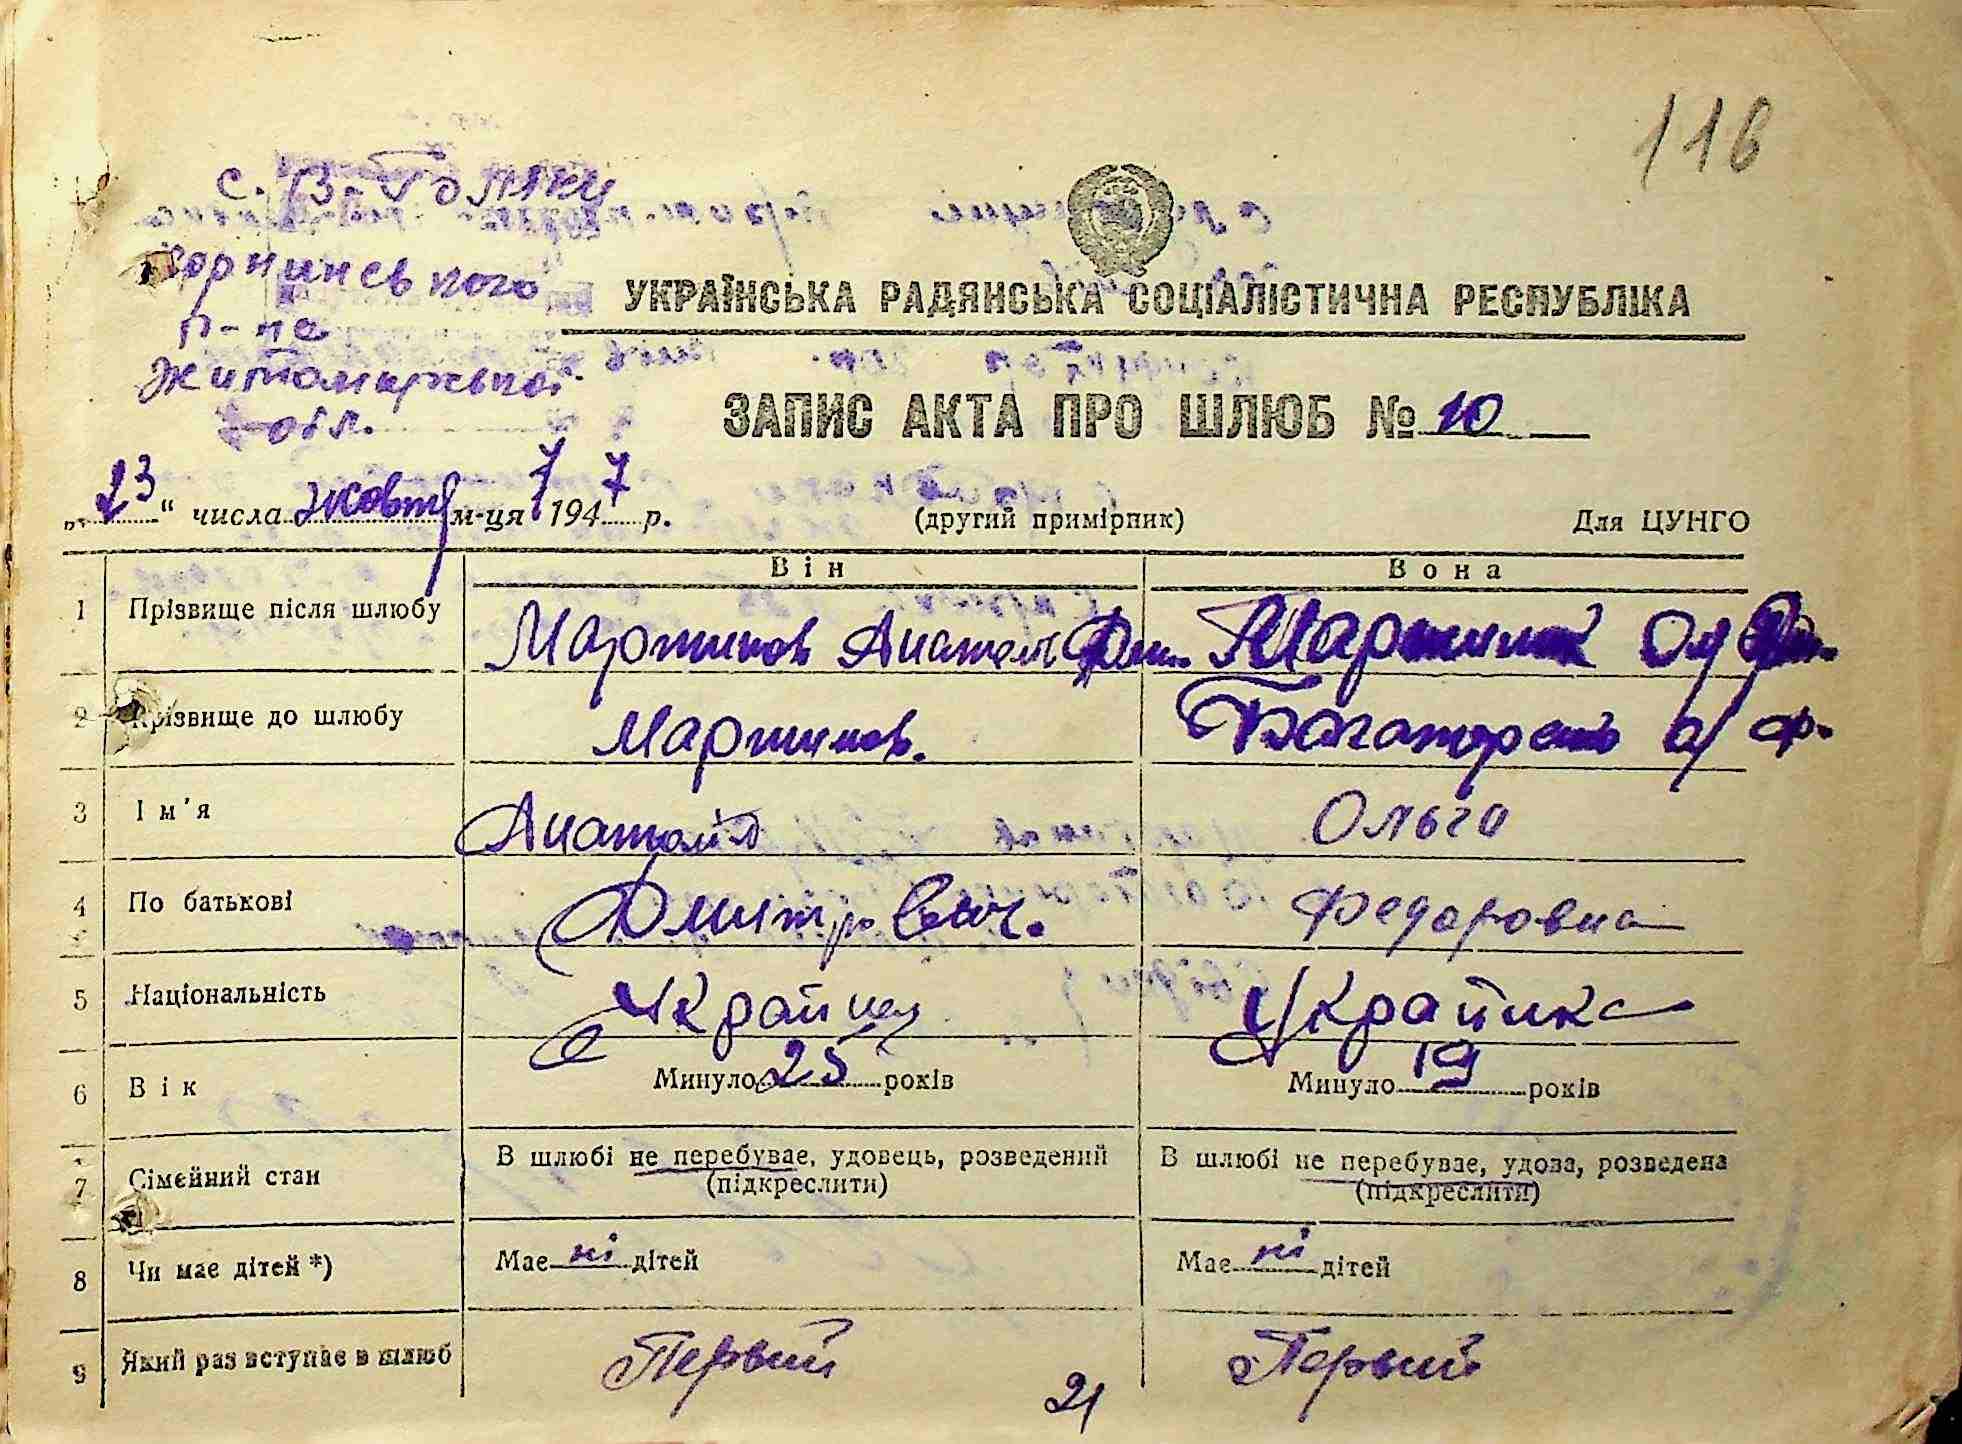 116
с. В-Голяки
Корнинського
р-на
Житомирської
обл.
УКРАЇНСЬКА РАДЯНСЬКА СОЦІАЛІСТИЧНА РЕСПУБЛІКА
ЗАПИС АКТА ПРО ШЛЮБ № 10
„23“ числа жовтня м-ця 1947 р.
(другий примірник)
Для ЦУНГО
Він Вона
1 Прізвище після шлюбу Мартинов Анатол Дми. Мартинов Ол
2 Прізвище до шлюбу Мартинов. Багатирень о/ Ф.
3 Ім'я Анатолій Ольга
4 По батькові Дмитрович. Федоровна
5 Національність Українец Українка
6 Вік Минуло 25 років Минуло 19 років
7 Сімейний стан В шлюбі не перебуває, удовець, розведений В шлюбі не перебуває, удова, розведена
(підкреслити) (підкреслити)
8 Чи має дітей *) Має ні дітей Має ні дітей
9 Який раз вступає в шлюб Первий Первий
21